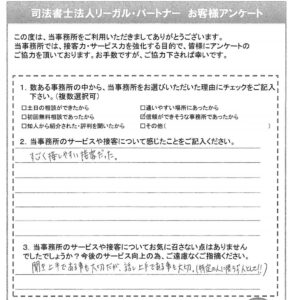 司法書士法人リーガル・パートナー お客様アンケート
この度は、当事務所をご利用いただきましてありがとうございます。
当事務所では、接客力・サービス力を強化する目的で、皆様にアンケートの
ご協力を頂いております。お手数ですが、ご協力下されば幸いです。
1. 数ある事務所の中から、当事務所をお選びいただいた理由にチェックをご記入
下さい。(複数選択可)
□土日の相談ができたから □通いやすい場所にあったから
□初回無料相談であったから ☑信頼ができそうな事務所であったから
□知人から紹介された・評判を聞いたから □その他( )
2. 当事務所のサービスや接客について感じたことをご記入ください。
すごく接しやすい接客だった。
3. 当事務所のサービスや接客についてお気に召さない点はありません
でしたでしょうか?今後のサービス向上の為、ご遠慮なくご指摘ください。
聞き上手である事も大切だが、話し上手である事も大切。